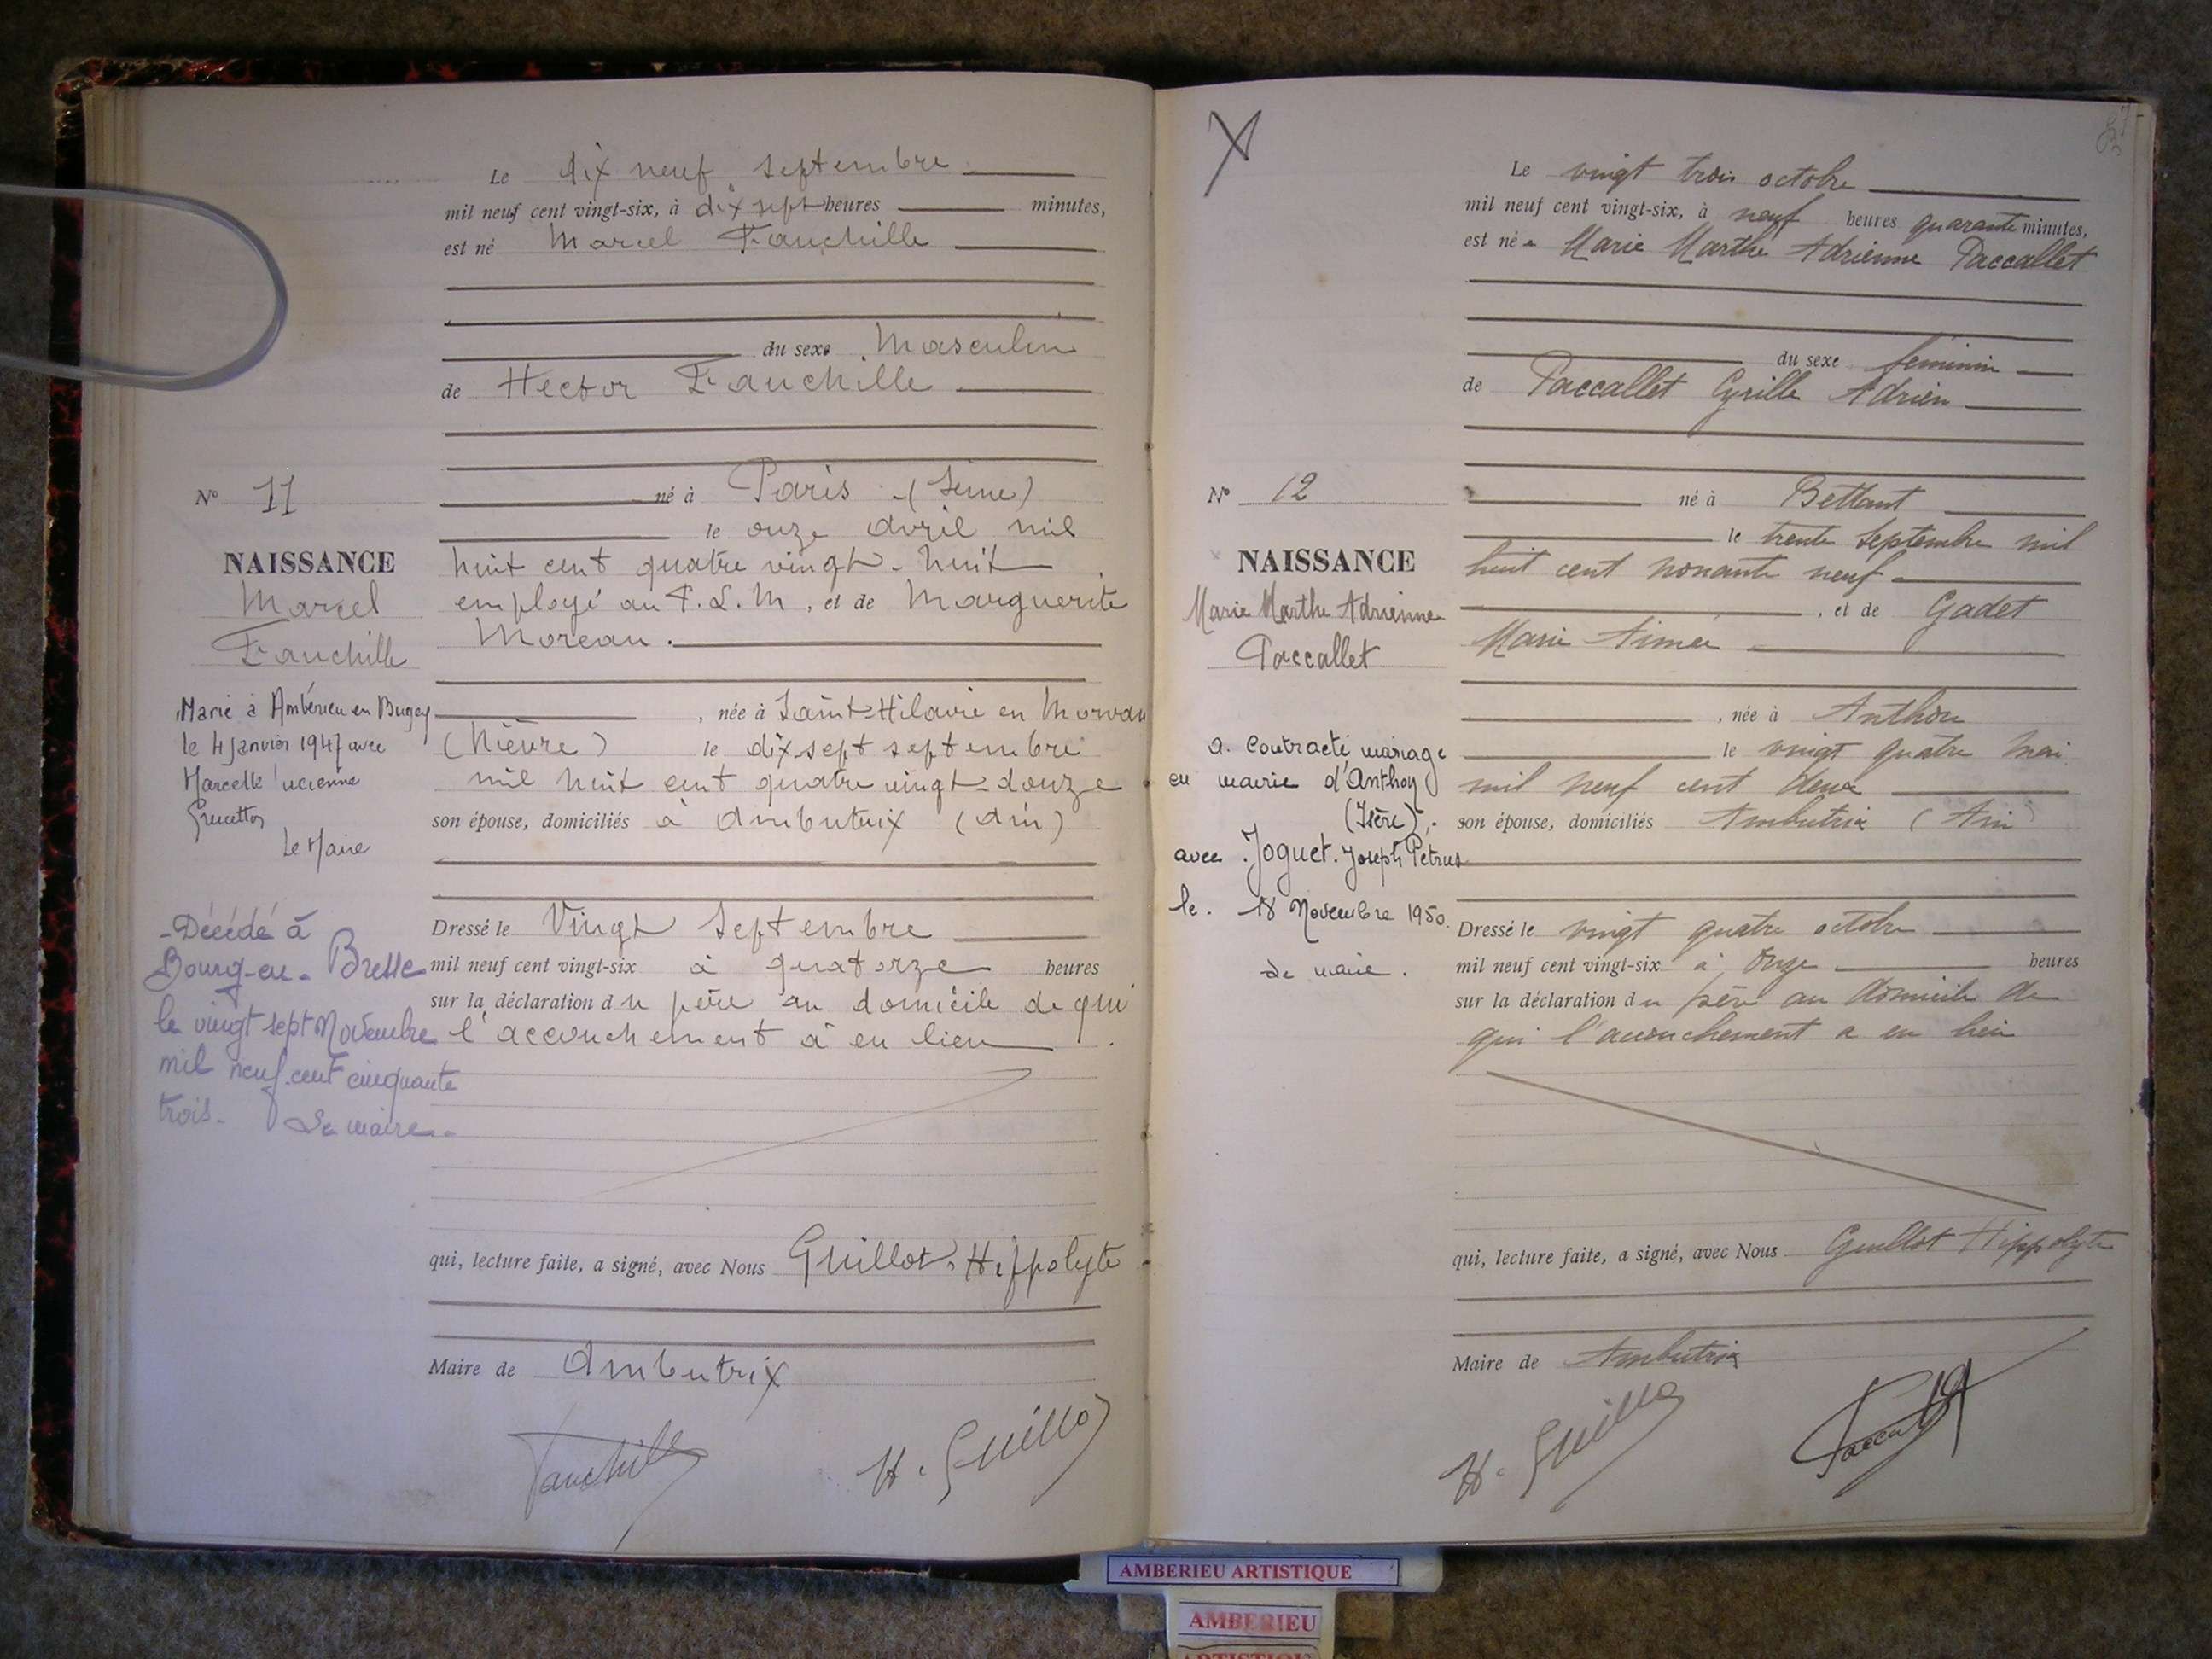 Le dix neuf septembre
mil neuf cent vingt-six, à dix sept heures minutes,
est né Marcel Fauchille
du sexe Masculin
de Hector Fauchille
né à Paris (Seine)
le onze avril mil
huit cent quatre vingt-huit
employé au P.L.M, et de Marguerite
Moreau.
, née à Saint-Hilaire en Morvan
(Nièvre) le dix sept septembre
mil huit cent quatre vingt-douze
son épouse, domiciliés à Ambutrix (Ain)
Dressé le Vingt Septembre
mil neuf cent vingt-six à quatorze heures
sur la déclaration du père au domicile de qui
l'accouchement à eu lieu
qui, lecture faite, a signé, avec Nous Guillot Hippolyte
Maire de Ambutrix
Fauchille
H. Guillot
N° 11
NAISSANCE
Marcel
Fauchille
Marié à Ambérieu en Bugey
le 4 janvier 1947 avec
Marcelle Lucienne
Le Maire
-Décédé à
Bourg-en-Bresse
le vingt sept Novembre
mil neuf cent cinquante
trois-
Le maire-
X
Le vingt trois octobre
mil neuf cent vingt-six, à neuf heures quarante minutes,
est née Marie Marthe Adrienne Paccallet
du sexe féminin
de Paccallet Cyrille Adrien
né à Bettant
le trente Septembre mil
huit cent nonante neuf
, et de Gadet
Marie Aimée
, née à Anthon
le vingt quatre mai
mil neuf cent deux
son épouse, domiciliés Ambutrix (Ain)
Dressé le vingt quatre octobre
mil neuf cent vingt-six à Onze heures
sur la déclaration du père au domicile de
qui l'accouchement a eu lieu
qui, lecture faite, a signé, avec Nous Guillot Hippolyte
Maire de Ambutrix
H. Guillot
Paccallet
N° 12
NAISSANCE
Marie Marthe Adrienne
Paccallet
a. Contracté mariage
en mairie d'Anthon
(Isère),
avec Joguet Joseph Petrus
le. 18 Novembre 1950.
Le maire.
AMBERIEU ARTISTIQUE
AMBERIEU
ARTISTIQUE